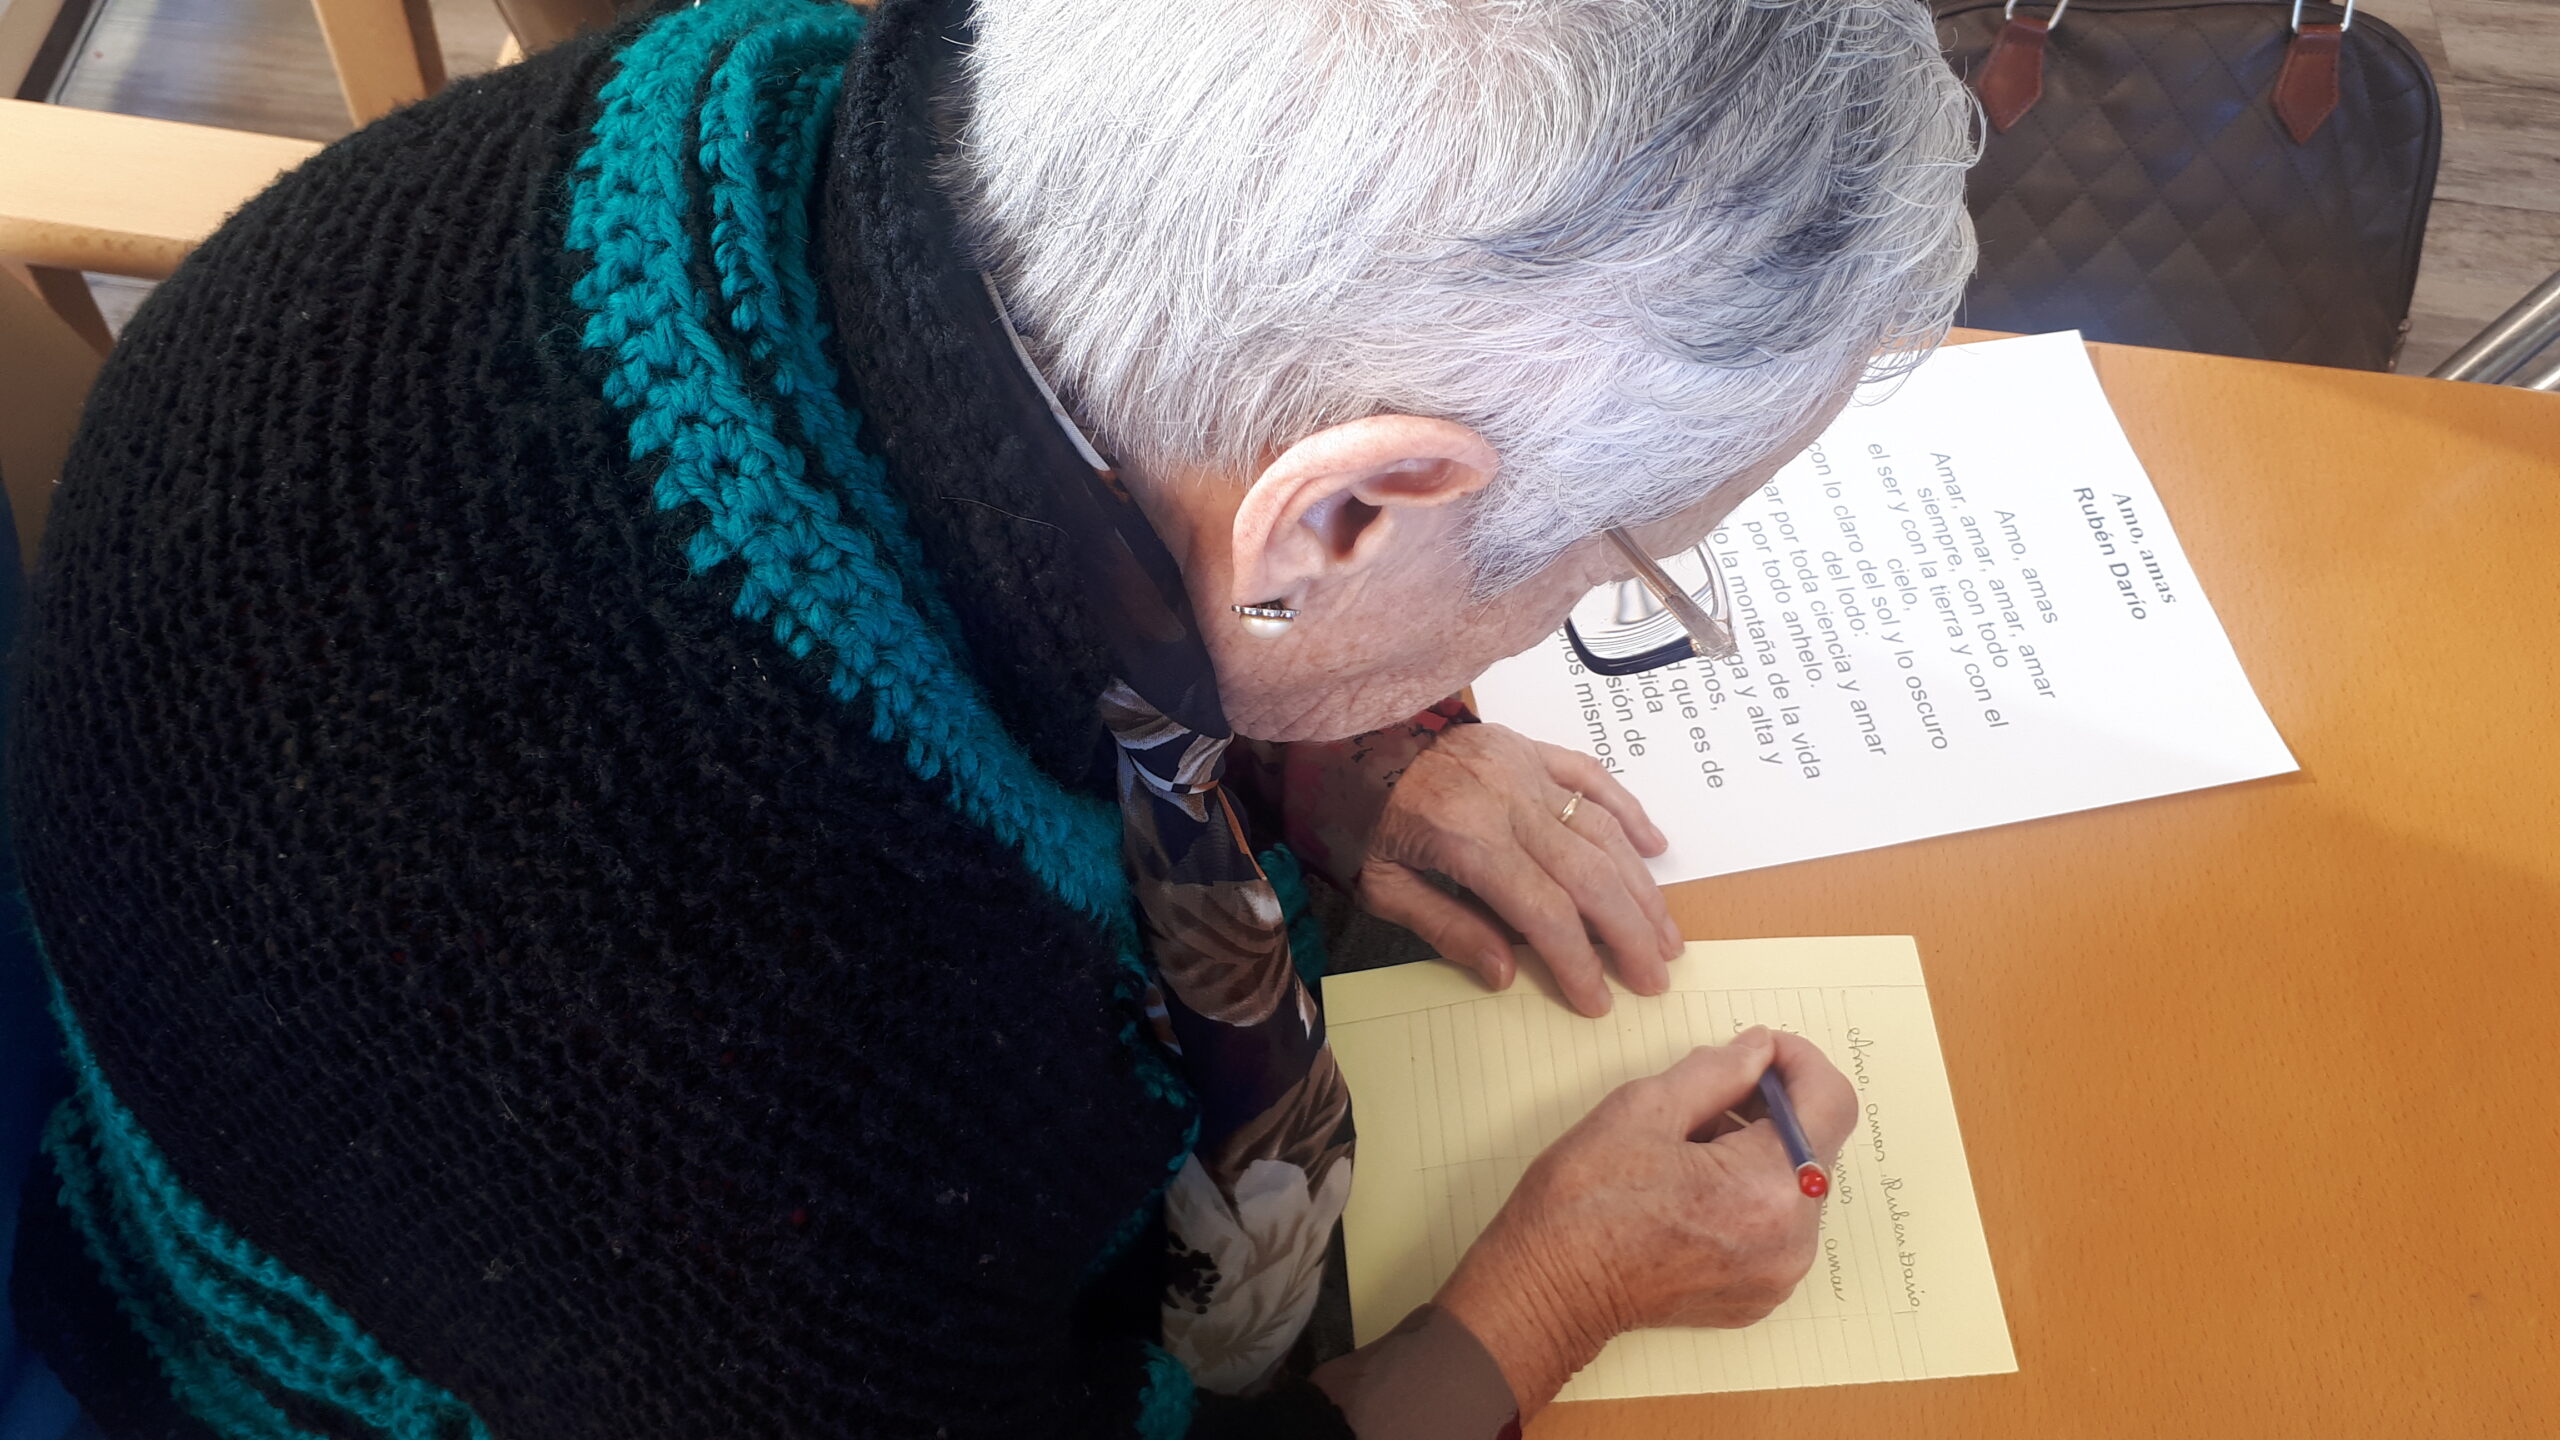 Amo, amas
Rubén Darío
Amo, amas
Amar, amar, amar, amar
siempre, con todo
el ser y con la tierra y con el
cielo,
con lo claro del sol y lo oscuro
del lodo:
por toda ciencia y amar
por todo anhelo.
la montaña de la vida
y alta y
que es de
de
mismos!
Amo, amas. Ruben Dario
amas
amar